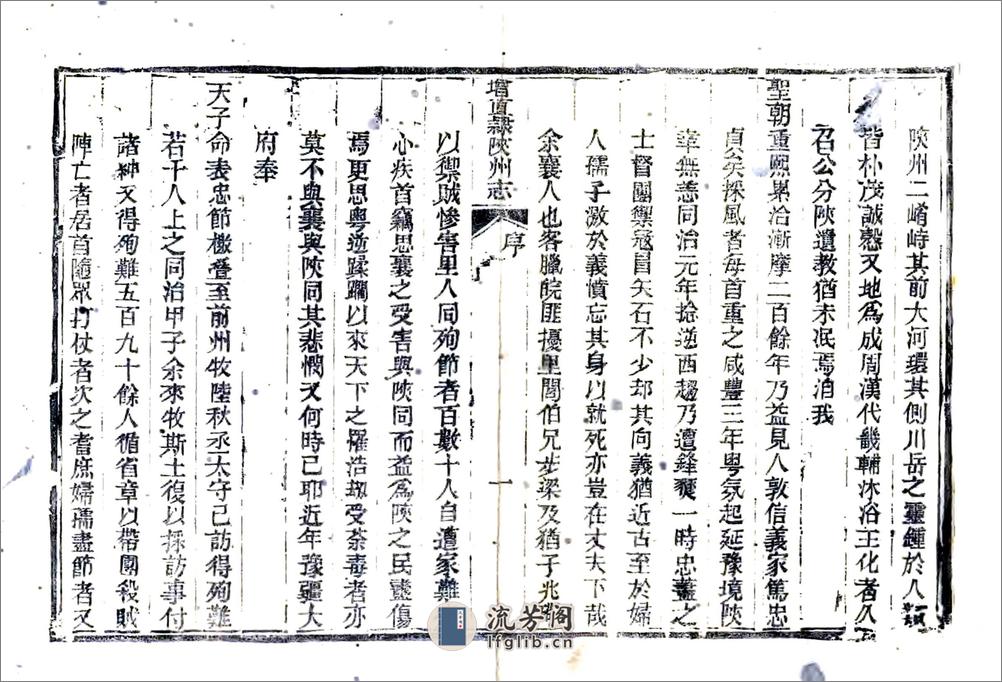 陝州二崤峙其前大河環其側川岳之靈鍾於人類
皆朴茂誠慤又地爲成周漢代畿輔沐浴王化者久
召公分陝遺教猶未泯焉洎我
聖朝重熙累洽漸摩二百餘年乃益見人敦信義家篤忠
貞矣採風者每首重之咸豐三年粵氛起延豫境陝
幸無恙同治元年捻逆西趨乃遭鋒
一時忠藎之
士督團禦寇冒矢石不少却其向義猶近古至於婦
人孺子激於義憤忘其身以就死亦豈在丈夫下哉
余襄人也客臘皖匪擾里閭伯兄步梁及猶子兆
增直隸陝州志
序
一
以禦賊慘害里人同殉節者百數十人自遭家難
心疾首竊思襄之受害與陝同而益爲陝之民衋傷
焉更思粵逆蹂躪以來天下之罹浩刼受荼毒者亦
莫不與襄與陝同其悲憫又何時已耶近年豫疆大
府奉
天子命表忠節檄疊至前州牧陸秋丞太守已訪得殉難
若干人上之同治甲子余來牧斯土復以採訪事付
諸紳又得殉難五百九十餘人循省章以帶團殺賊
陣亡者居首隨眾打仗者次之耆庶婦孺盡節者又
流芳閣
lfglib.cn